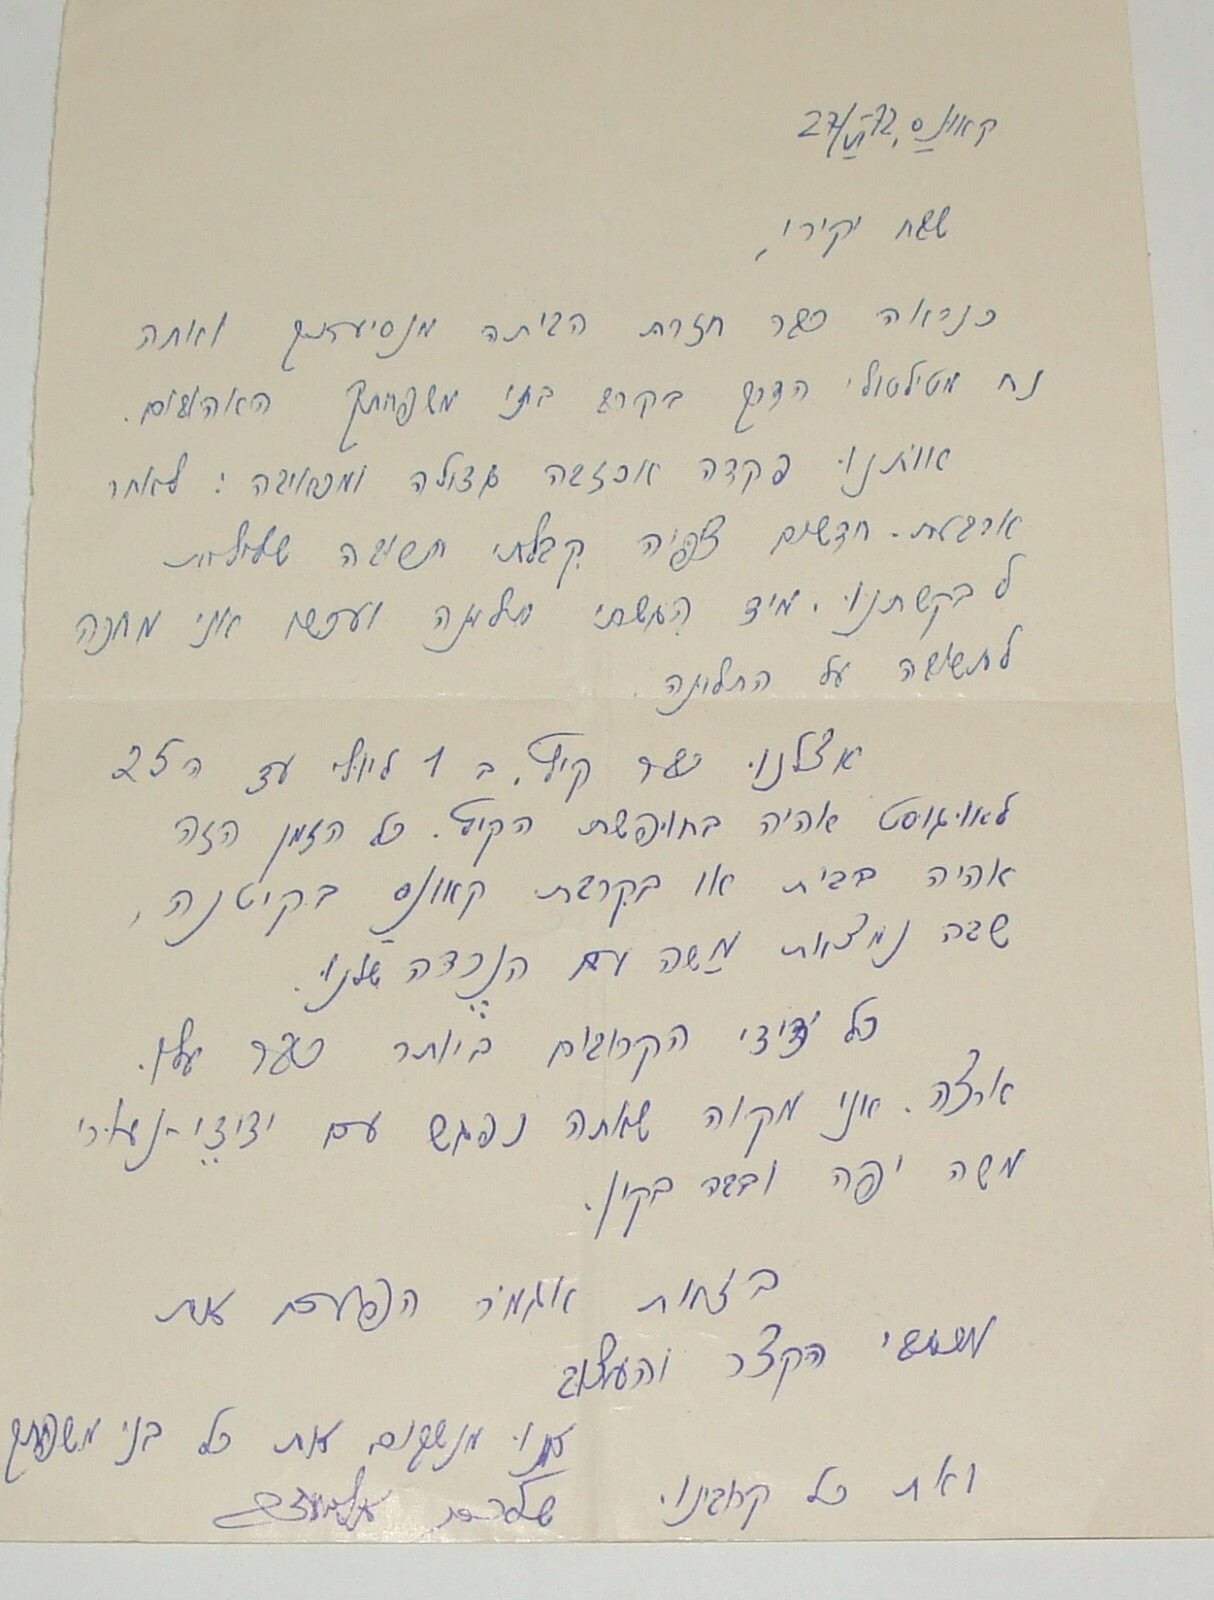 קאונס, 27/VI 72
שבח יקירי,
כנראה כבר חזרת הביתה מנסיעתך ואתה
נח מטילטולי הדרך בקרב בני משפחתך האהובים.
אותנו פקדה אכזבה גדולה ומכאיבה: לאחר
ארבעת חדשים צפיה קבלתי תשובה שלילית
לבקשתנו. מיד הגשתי תלונה ועכשו אני מחכה
לתשובה על התלונה.
אצלנו כבר קיץ. ב 1 ליולי עד ה 25
לאוגוסט אהיה בחופשת הקיץ. כל הזמן הזה
אהיה בבית או בקרבת קאונס בקיטנה,
שבה נמצאת משה עם הנכדה שלנו.
כל ידידי הקרובים ביותר כבר עלו
ארצה. אני מקוה שאתה נפגש עם ידידי-נעורי
משה יפה ובבה בקין.
בזאת אגמר הפעם את
מכתבי הקצר והעצוב
אנו מנשקים את כל בני משפחתך
ואת כל קרובינו.